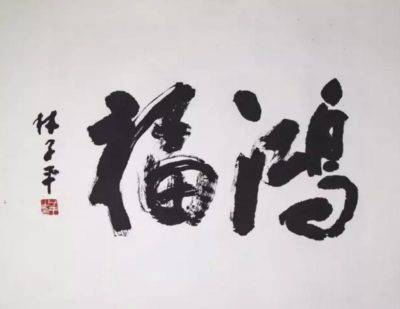 鸿福
林子平